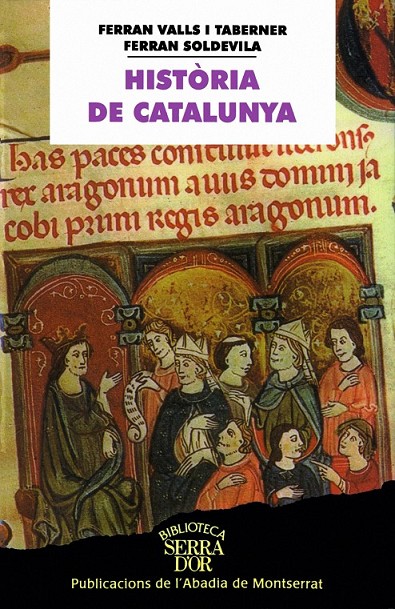 FERRAN VALLS I TABERNER
FERRAN SOLDEVILA
HISTÒRIA
DE CATALUNYA
has paces constituit ildefons
rex aragonum auus domini ja
cobi primi regis aragonum.
BIBLIOTECA
SERRA
D'OR
Publicacions de l'Abadia de Montserrat